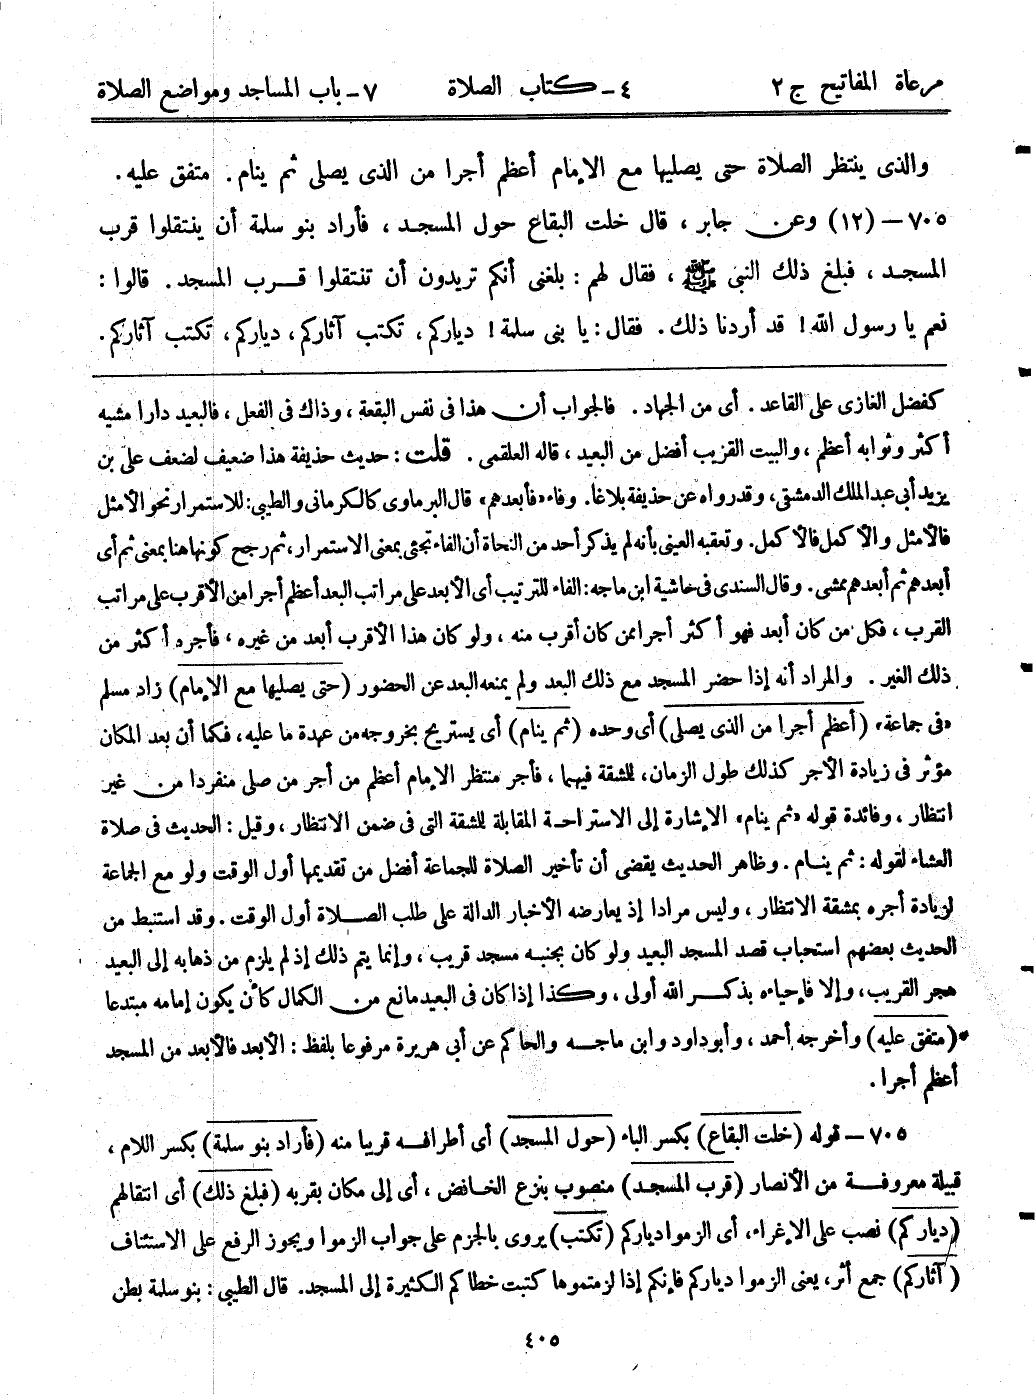 مرعاة المفاتيح ج ٢ ٤ - كتاب الصلاة ٧ - باب المساجد ومواضع الصلاة
والذى ينتظر الصلاة حتى يصليها مع الإمام أعظم أجرا من الذى يصلى ثم ينام. متفق عليه.
٧٠٥ – (١٢) وعن جابر ، قال خلت البقاع حول المسجد ، فأراد بنو سلمة أن ينتقلوا قرب
المسجد ، فبلغ ذلك النبى ﷺ ، فقال لهم : بلغنى أنكم تريدون أن تنتقلوا قرب المسجد . قالوا :
نعم يا رسول الله! قد أردنا ذلك. فقال : يا بنى سلمة! دياركم، تكتب آثاركم، دياركم، تكتب آثاركم.
كفضل الغازى على القاعد . أى من الجهاد . فالجواب أن هذا فى نفس البقعة ، وذاك فى الفعل ، فالبعيد دارا مشيه
أكثر وثوابه أعظم ، والبيت القريب أفضل من البعيد ، قاله العلقمى . قلت : حديث حذيفة هذا ضعيف لضعف على بن
يزيد أبى عبد الملك الدمشقى، وقد رواه عن حذيفة بلاغا. وفاء «فأبعدهم» قال البرماوى كالكرمانى والطيبى: للاستمرار نحو الأمثل
فالأمثل والأكمل فالأكمل. وتعقبه العينى بأنه لم يذكر أحد من النحاة أن الفاء تجئى بمعنى الاستمرار، ثم رجح كونها هنا بمعنى ثم أى
أبعدهم ثم أبعدهم ممشى. وقال السندى فى حاشية ابن ماجه: الفاء للترتيب أى الأبعد على مراتب البعد أعظم أجرا من الأقرب على مراتب
القرب ، فكل من كان أبعد فهو أكثر أجرا ممن كان أقرب منه ، ولو كان هذا الأقرب أبعد من غيره ، فأجره أكثر من
ذلك الغير . والمراد أنه إذا حضر المسجد مع ذلك البعد ولم يمنعه البعد عن الحضور (حتى يصليها مع الإمام) زاد مسلم
«فى جماعة» (أعظم أجرا من الذى يصلى) أى وحده (ثم ينام) أى يستريح بخروجه من عهدة ما عليه، فكما أن بعد المكان
مؤثر فى زيادة الأجر كذلك طول الزمان، للشقة فيهما ، فأجر منتظر الإمام أعظم من أجر من صلى منفردا من غير
انتظار ، وفائدة قوله «ثم ينام» الإشارة إلى الاستراحة المقابلة للشقة التى فى ضمن الانتظار ، وقيل : الحديث فى صلاة
العشاء لقوله : ثم ينام . وظاهر الحديث يقضى أن تأخير الصلاة للجماعة أفضل من تقديمها أول الوقت ولو مع الجماعة
لزيادة أجره بمشقة الانتظار ، وليس مرادا إذ يعارضه الأخبار الدالة على طلب الصلاة أول الوقت . وقد استنبط من
الحديث بعضهم استحباب قصد المسجد البعيد ولو كان بجنبه مسجد قريب ، وإنما يتم ذلك إذ لم يلزم من ذهابه إلى البعيد
هجر القريب، وإلا فإحياءه بذكر الله أولى ، وكذا إذا كان فى البعيد مانع من الكمال كأن يكون إمامه مبتدعا
(متفق عليه) وأخرجه أحمد ، وأبو داود وابن ماجه والحاكم عن أبى هريرة مرفوعا بلفظ : الأبعد فالأبعد من المسجد
أعظم أجرا .
٧٠٥ – قوله (خلت البقاع) بكسر الباء (حول المسجد) أى أطرافه قريبا منه (فأراد بنو سلمة) بكسر اللام ،
قبيلة معروفة من الأنصار (قرب المسجد) منصوب بنزع الخافض ، أى إلى مكان بقربه (فبلغ ذلك) أى انتقالهم
(دياركم) نصب على الإغراء، أى الزموا دياركم (تكتب) يروى بالجزم على جواب الزموا ويجوز الرفع على الاستئناف
(آثاركم) جمع أثر، يعنى الزموا دياركم فإنكم إذا لزمتموها كتبت خطاكم الكثيرة إلى المسجد. قال الطيبى : بنو سلمة بطن
٤٠٥